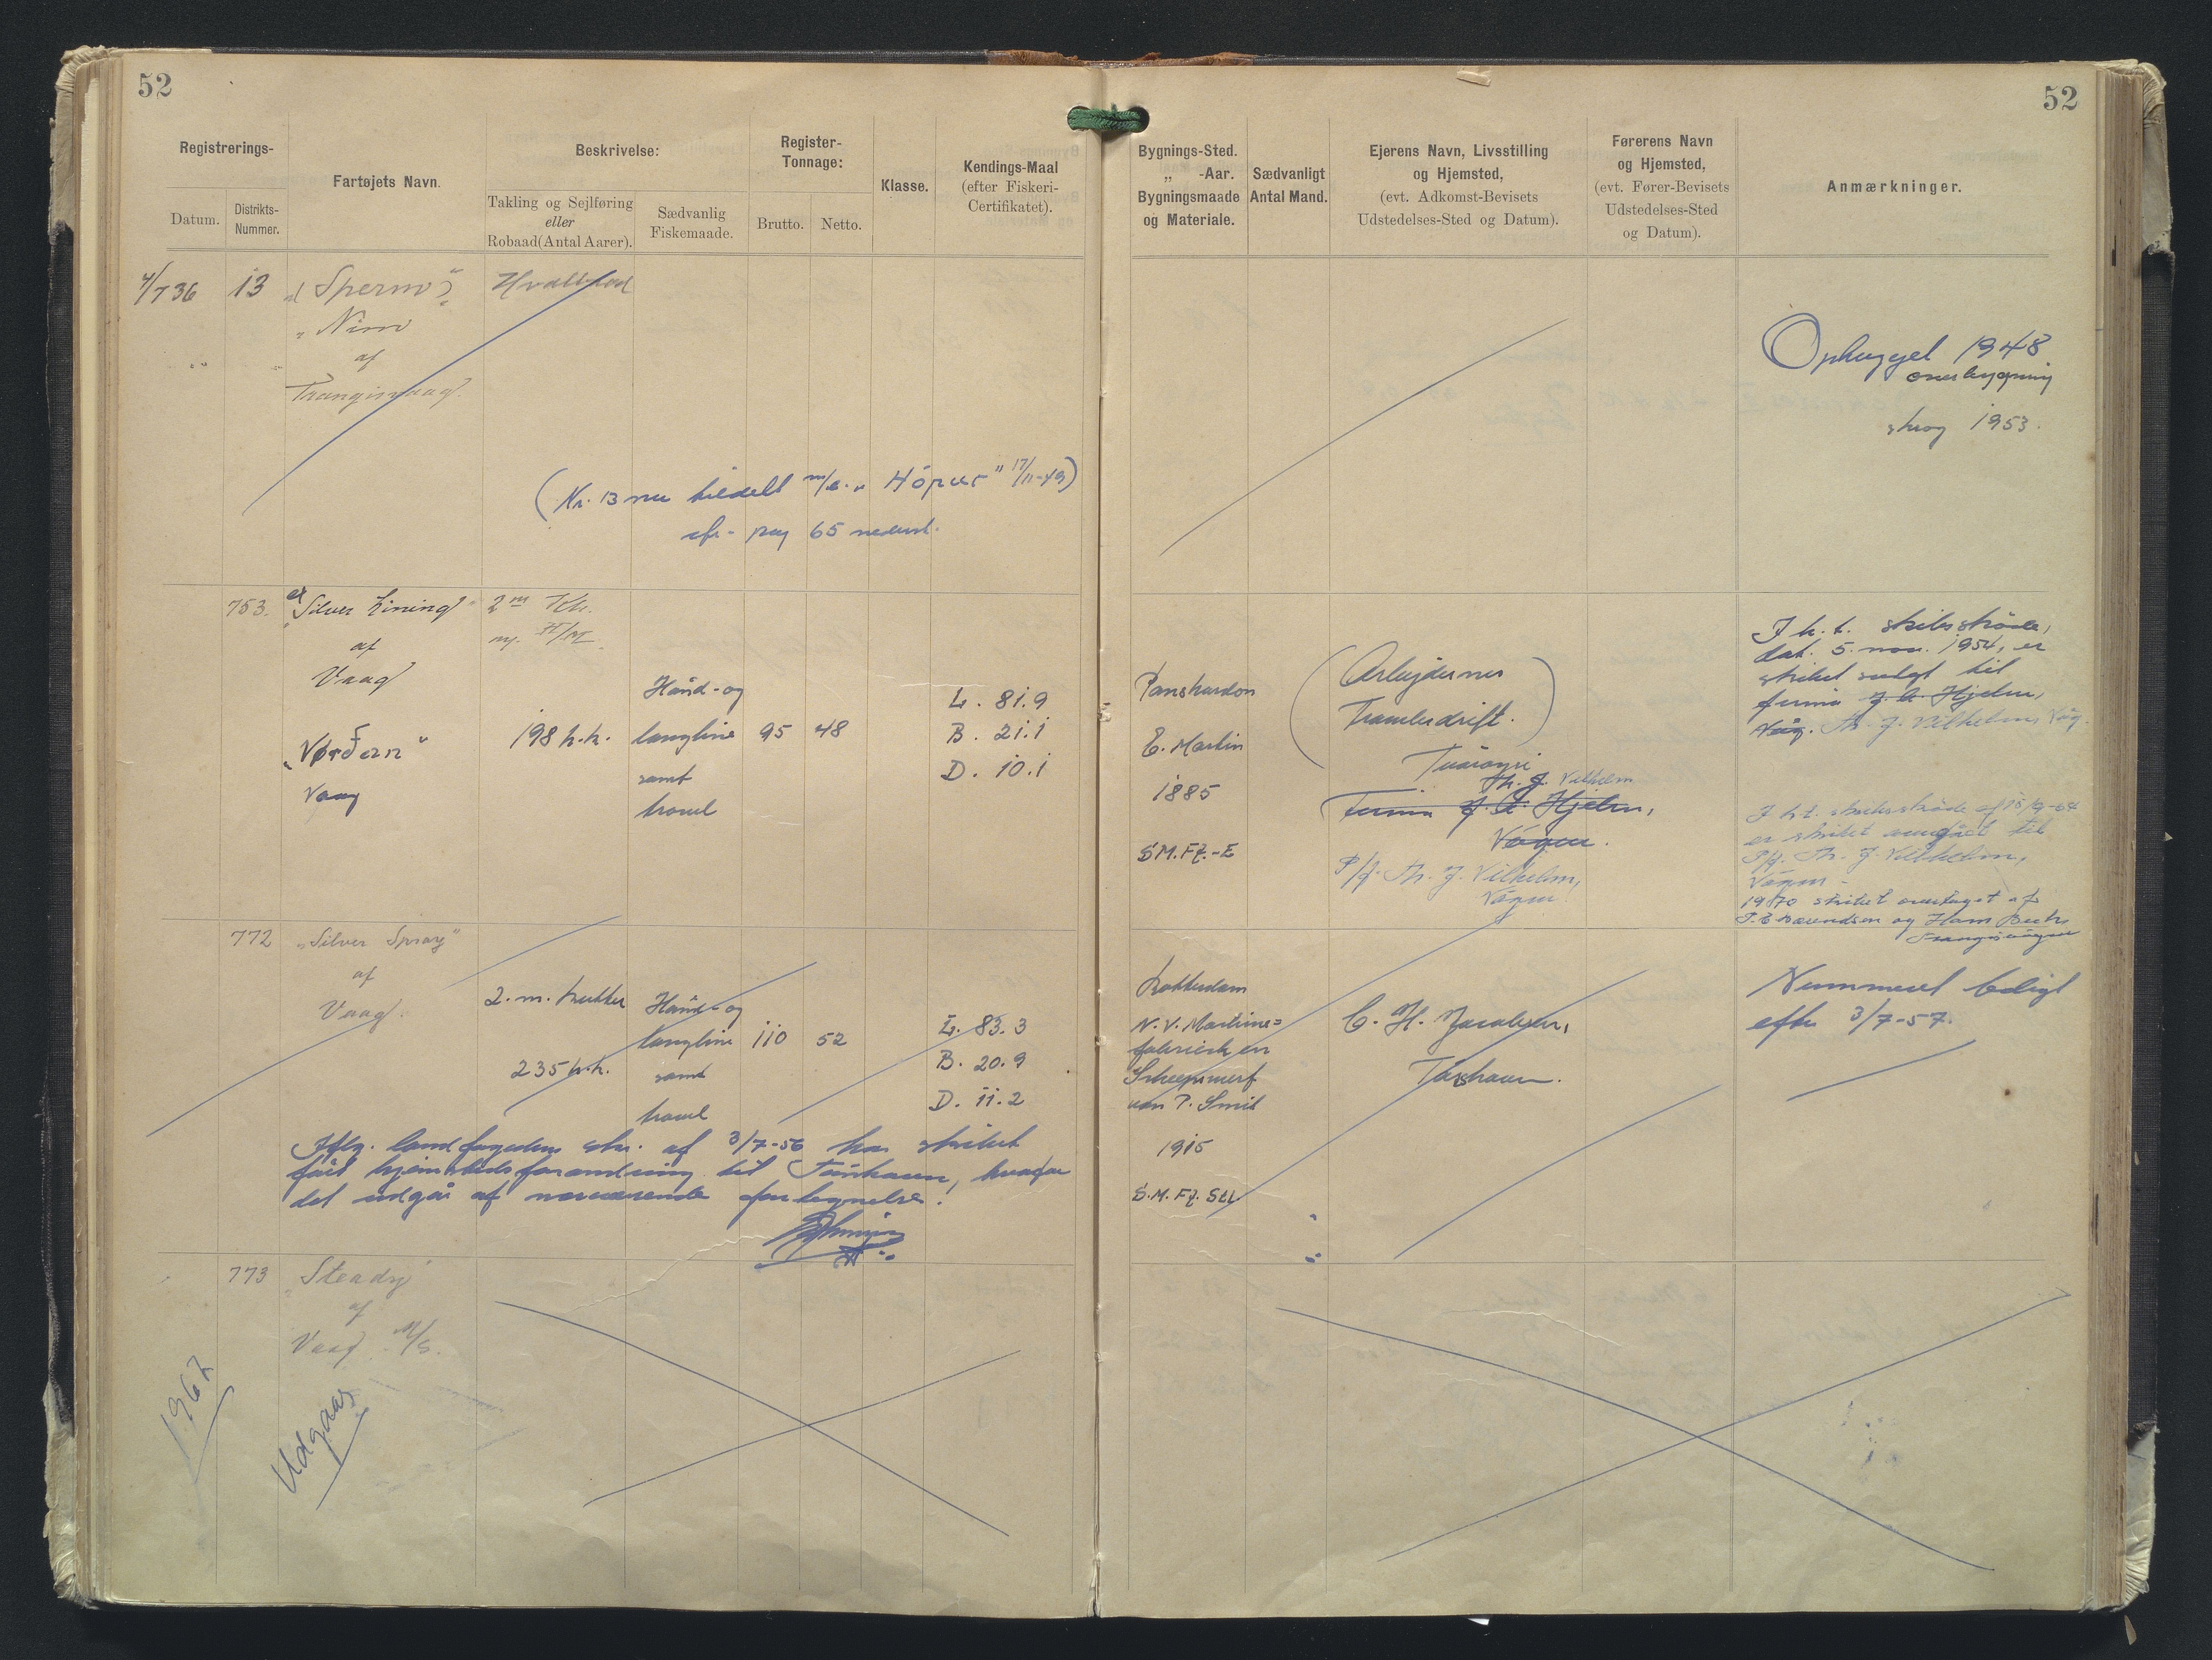 52
Registrerings-
Datum.
Distrikts-
Nummer.
Fartøjets Navn.
Beskrivelse:
Takling og Sejlføring
eller
Robaad (Antal Aarer).
Sædvanlig
Fiskemaade.
Register-
Tonnage:
Brutto.
Netto.
Klasse.
Kendings-Maal
(efter Fiskeri-
Certifikatet).
4/7 36 13 "Sperm"
"Nim"
af
Trangisvaag
(Nr. 13 nu tildelt m/s. "Hópur" 17/11-49)
cfr. pag 65 nederst.
753. ex "Silver Lining" 2m
af
Vaag
"Vørðan"
Vaag
198 h.k.
Hånd- og
langline
samt
trawl
95 48
L. 81.9
B. 21.1
D. 10.1
772 "Silver Spray"
af
Vaag.
2. m. kutter
235 h.k.
Hånd- og
langline
samt
trawl
110 52
L. 83.3
B. 20.9
D. 11.2
Iflg. landfogedens skr. af 3/7-56 har skibet
fået hjemstedsforandring til Tórshavn, hvorfor
det udgår af nærværende fortegnelse!
773 "Steady"
af
Vaag M/S.
1967
Udgaar
52
Bygnings-Sted.
„ -Aar.
Bygningsmaade
og Materiale.
Sædvanligt
Antal Mand.
Ejerens Navn, Livsstilling
og Hjemsted,
(evt. Adkomst-Bevisets
Udstedelses-Sted og Datum).
Førerens Navn
og Hjemsted,
(evt. Fører-Bevisets
Udstedelses-Sted
og Datum).
Anmærkninger.
Ophugget 1948
overbygning
skrog 1953.
E. Martin
1885
S.M.Fz.-E
(Arbejdernes
Trawlerdrift.)
Tvøroyri
Th. J. Vilhelm
Firma J. A. Hjelm,
Vágur.
P/f. Th. J. Vilhelm,
Vágur
I h. t. skibsskøde,
dat. 5. nov. 1954, er
skibet solgt til
firma J. A. Hjelm,
Våg. Th. J. Vilhelm, Våg.
I h.t. skibsskøde af
er skibet overgået til
P/f. Th. J. Vilhelm,
Vágur
1970 skibet overtaget af
og Hans
Trangisvágur
Rotterdam
N. V. Machine=
fabriek en
Scheepswerf
van P. Smit
1915
S.M. Fz. Stl.
C. H. Jacobsen,
Tórshavn.
Nummeret ledigt
efter 3/7-57.